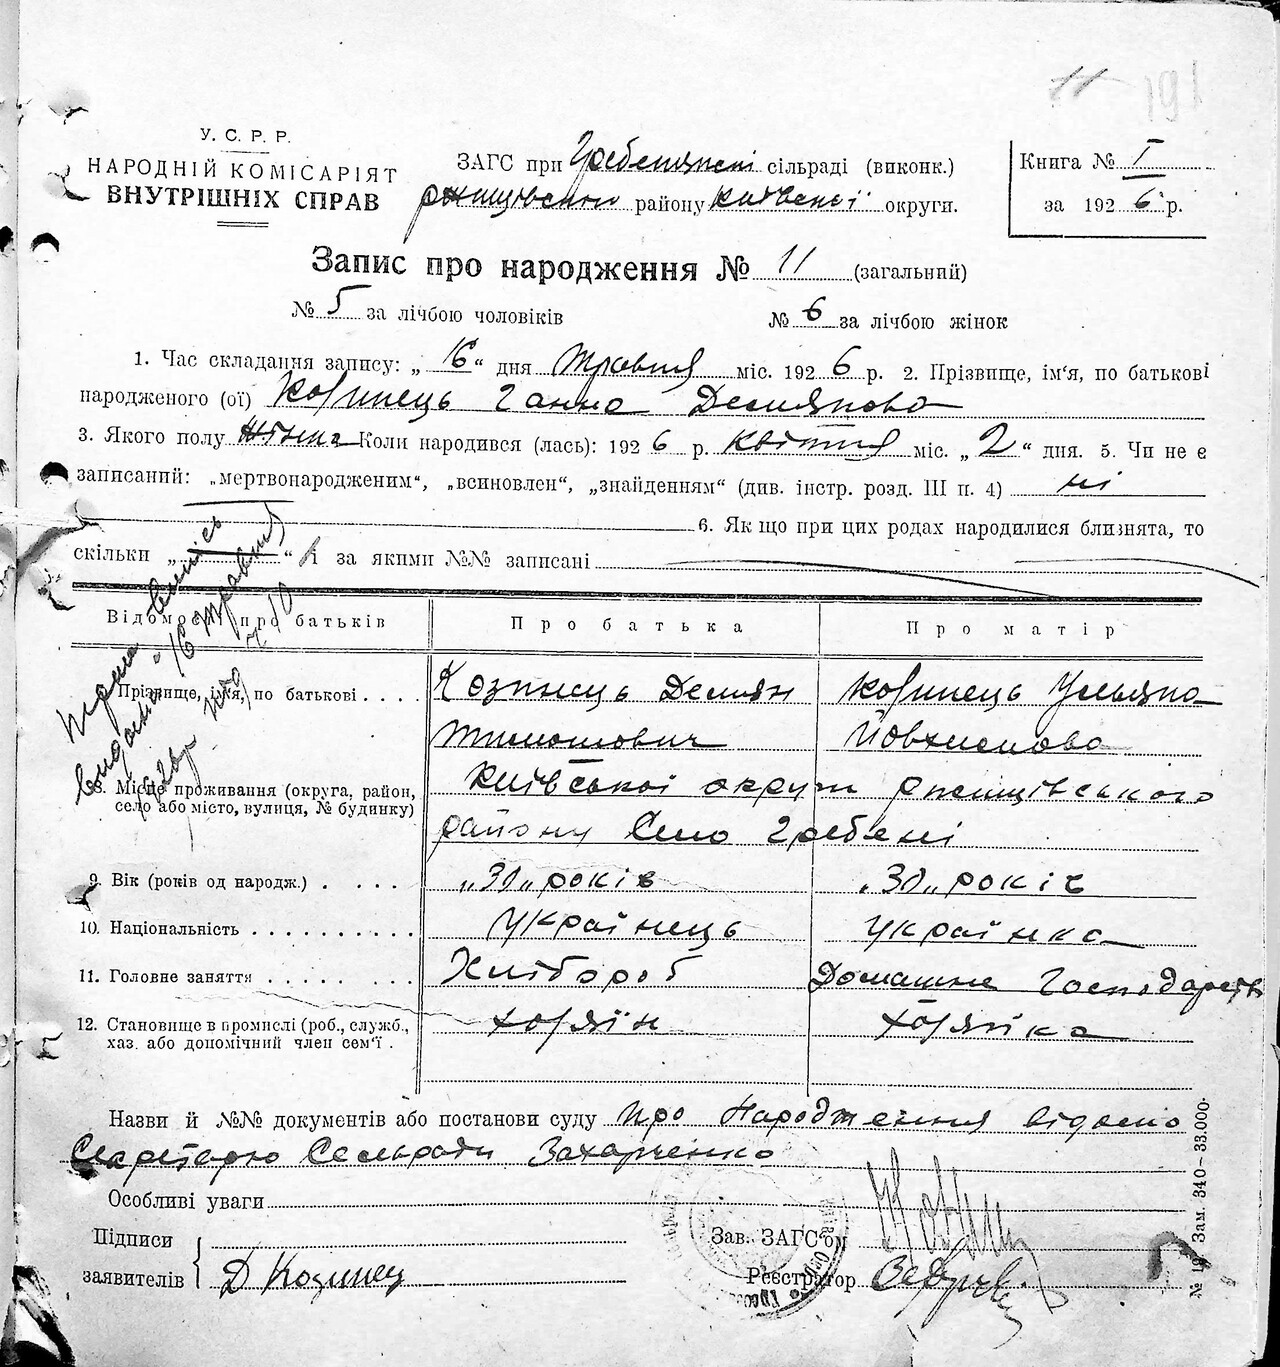 191
У. С. Р. Р.
НАРОДНІЙ КОМІСАРІЯТ
ВНУТРІШНІХ СПРАВ
ЗАГС при Гребенянскі сільраді (виконк.)
ржищівськи району київської округи.
Книга № I
за 1926 р.
Запис про народження № 11 (загальний)
№ 5 за лічбою чоловіків
№ 6 за лічбою жінок
1. Час складання запису: „16“ дня травня міс. 1926 р. 2. Прізвище, ім'я, по батькові
народженого (ої) Козинець Ганна Демянова
3. Якого полу жіноча Коли народився (лась): 1926 р. квітня міс. „2“ дня. 5. Чи не є
записаний: „мертвонародженим“, „всиновлен“, „знайденням“ (див. інстр. розд. III п. 4) ні
6. Якщо при цих родах народилися близнята, то
скільки „ “ і за якими №№ записані
Відомості про батьків
Про батька
Про матір
Прізвище, ім'я, по батькові
Козинець Демян
Тимошович
Козинець Ульяна
Йовхимова
8. Місце проживання (округа, район,
село або місто, вулиця, № будинку)
Київської округи ржищівського
району Село Гребені
9. Вік (років од народж.)
„30„ років
„30„ років
10. Національність
Українець
Українка
11. Головне заняття
Хлібороб
Домашнє Господарств
12. Становище в промислі (роб., служб.,
хаз. або допомічний член сем'ї.
хозяїн
хозяйка
Перша випись
видана „16 травня
1926 р. № 10
Назви й №№ документів або постанови суду про Народження відомо
Секретарю Сельради Захарченко
Особливі уваги
Підписи
заявителів
Д Козинец
Зав. ЗАГС'ом
Реєстратор
№ 19 Зам. 340–33.000.